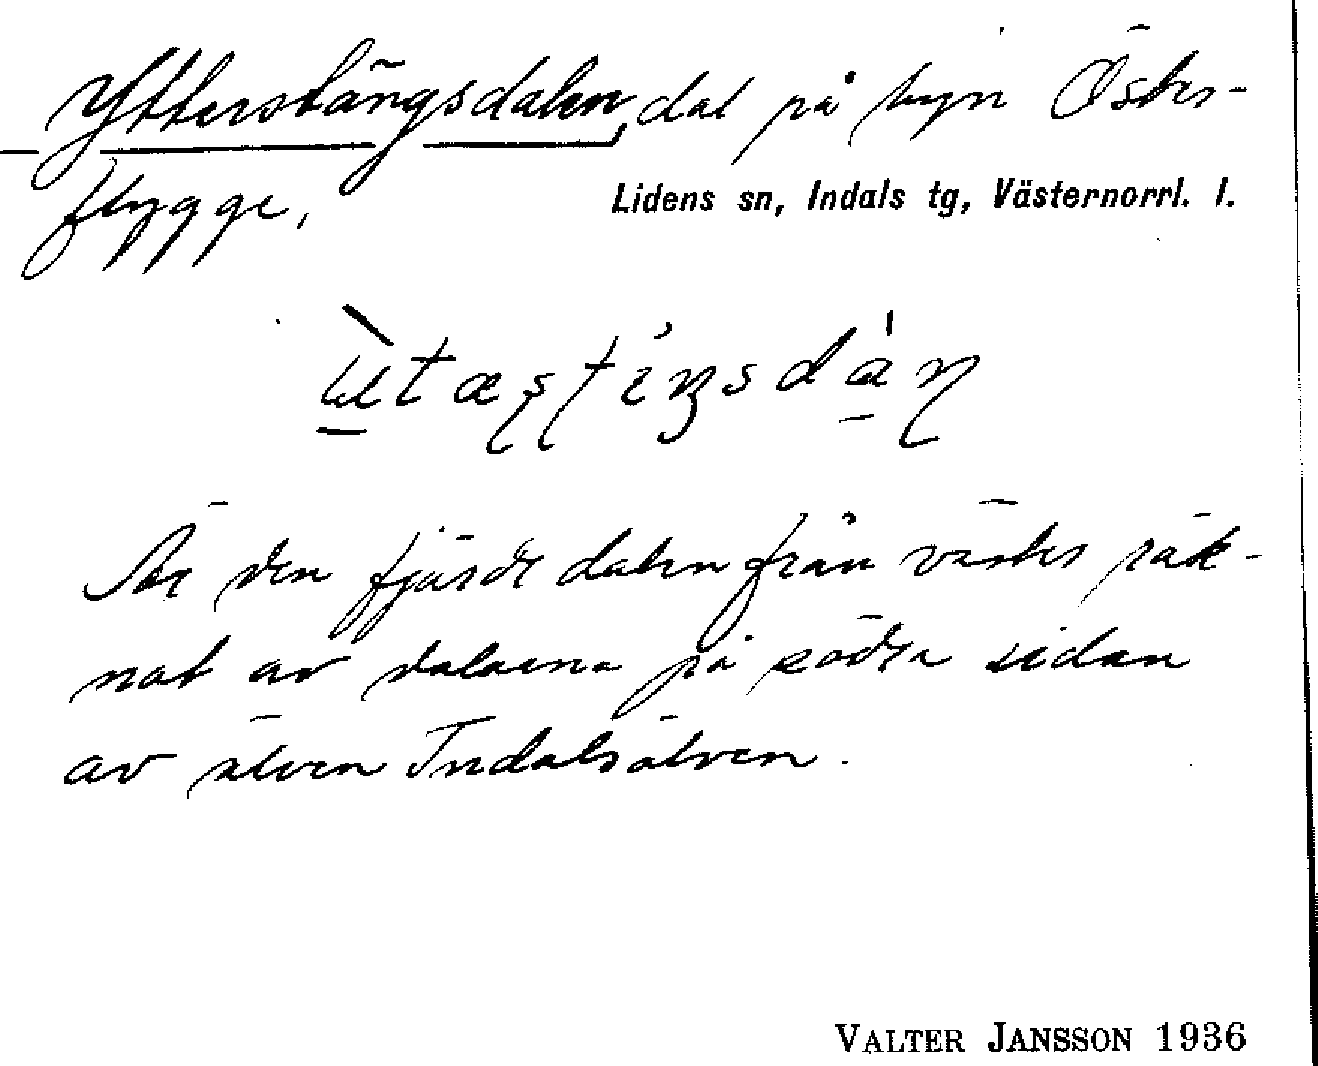 Ytterstängsdalen, dal på byn Öster-
flygge, Lidens sn, Indals tg, Västernorrl. l.
Är den fjärde dalen från väster räk-
nat av dalarna på södra sidan
av älven Indalsälven.
VALTER JANSSON 1936